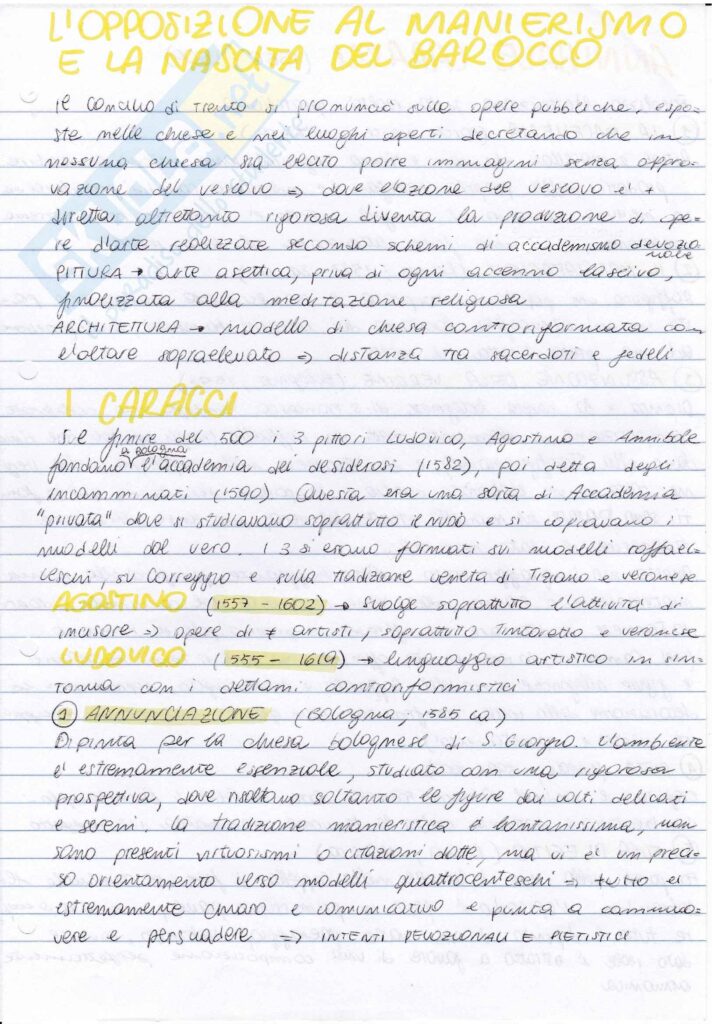 L'OPPOSIZIONE AL MANIERISMO
E LA NASCITA DEL BAROCCO
Il Concilio di Trento si pronunciò sulle opere pubbliche, espo-
ste nelle chiese e nei luoghi aperti decretando che in
nessuna chiesa sia lecito porre immagini senza appro-
vazione del vescovo => dove elazione del vescovo e' +
diretta altrettanto rigorosa diventa la produzione di ope-
re d'arte realizzate secondo schemi di accademismo devozio-
nale
PITTURA → arte asettica, priva di ogni accenno lascivo,
finalizzata alla meditazione religiosa
ARCHITETTURA → modello di chiesa controriformata con
l'altare sopraelevato => distanza tra sacerdoti e fedeli
I CARACCI
Sul finire del 500 i 3 pittori Ludovico, Agostino e Annibale
a Bologna
fondano l'accademia dei desiderosi (1582), poi detta degli
incamminati (1590). Questa era una sorta di Accademia
"privata" dove si studiavano soprattutto il nudo e si copiavano i
modelli dal vero. I 3 si erano formati sui modelli raffael-
leschi, su Correggio e sulla tradizione veneta di Tiziano e veronese
AGOSTINO (1557 - 1602) → svolge soprattutto l'attivita' di
incisore => opere di ≠ artisti, soprattutto Tintoretto e veronese
LUDOVICO (1555 - 1619) → linguaggio artistico in sin-
tonia con i dettami controriformistici
1 ANNUNCIAZIONE (Bologna, 1585 ca.)
Dipinta per la chiesa bolognese di S. Giorgio. L'ambiente
e' estremamente essenziale, studiato con una rigorosa
prospettiva, dove risaltano soltanto le figure dai volti delicati
e sereni. La tradizione manieristica è lontanissima, non
sono presenti virtuosismi o citazioni dotte, ma vi e' un preci-
so orientamento verso modelli quattrocenteschi => tutto e'
estremamente chiaro e comunicativo e punta a commuo-
vere e persuadere => INTENTI DEVOZIONALI E PIETISTICI